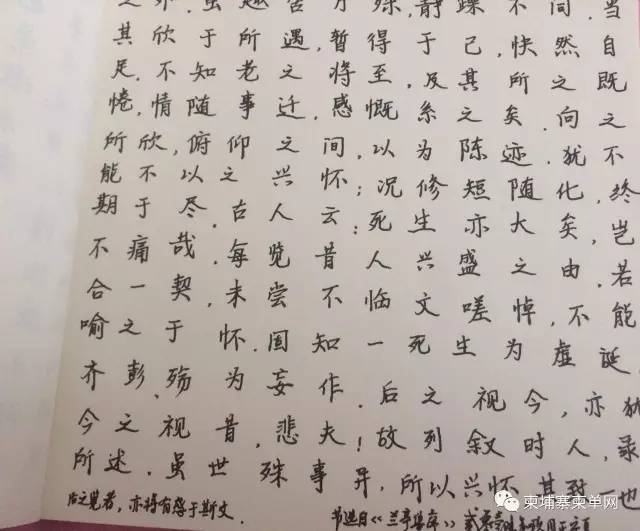 之外.虽趣舍万殊,静躁不同,当
其欣于所遇,暂得于己,快然自
足,不知老之将至,及其所之既
惓,情随事迁,感慨系之矣.向之
所欣,俯仰之间,以为陈迹,犹不
能不以之兴怀;况修短随化,终
期于尽.古人云:死生亦大矣,岂
不痛哉.每览昔人兴盛之由,若
合一契,未尝不临文嗟悼,不能
喻之于怀.固知一死生为虚诞,
齐彭殇为妄作.后之视今,亦犹
今之视昔,悲夫!故列叙时人,录
所述.虽世殊事异,所以兴怀,其致一也
后之览者,亦将有感于斯文.
节选自《兰亭集序》
柬埔寨柬单网